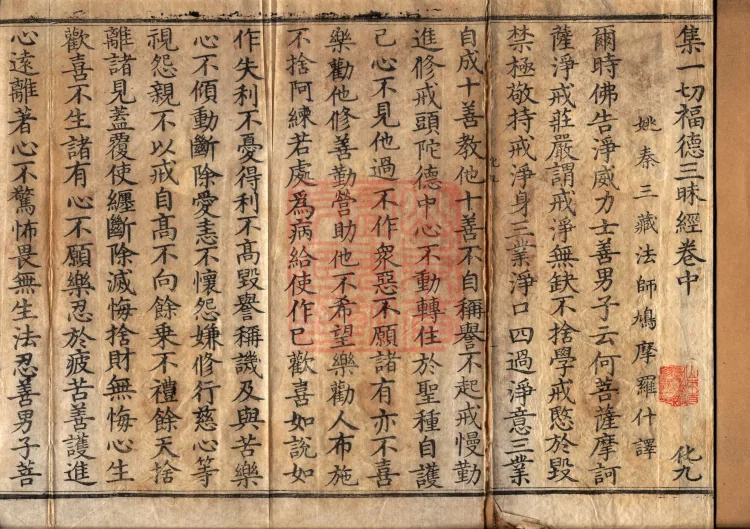 集一切福德三昧經卷中
化九
姚秦三藏法師鳩摩羅什譯
爾時佛告淨威力士善男子云何菩薩摩訶
薩淨戒莊嚴謂戒淨無缺不捨學戒愍於毀
禁極敬持戒淨身三業淨口四過淨意三業
自成十善教他十善不自稱譽不起戒慢勤
進修戒頭陀德中心不動轉住於聖種自護
己心不見他過不作衆惡不願諸有亦不喜
樂勸他修善勤營助他不希望樂勸人布施
不捨阿練若處爲病給使作已歡喜如說如
作失利不憂得利不高毀譽稱譏及與苦樂
心不傾動斷除愛恚不懷怨嫌修行慈心等
視怨親不以戒自高不向餘乗不禮餘天捨
離諸見蓋覆使纏斷除滅悔捨財無悔心生
歡喜不生諸有心不願樂忍於疲苦善護進
心遠離著心不驚怖畏無生法忍善男子菩